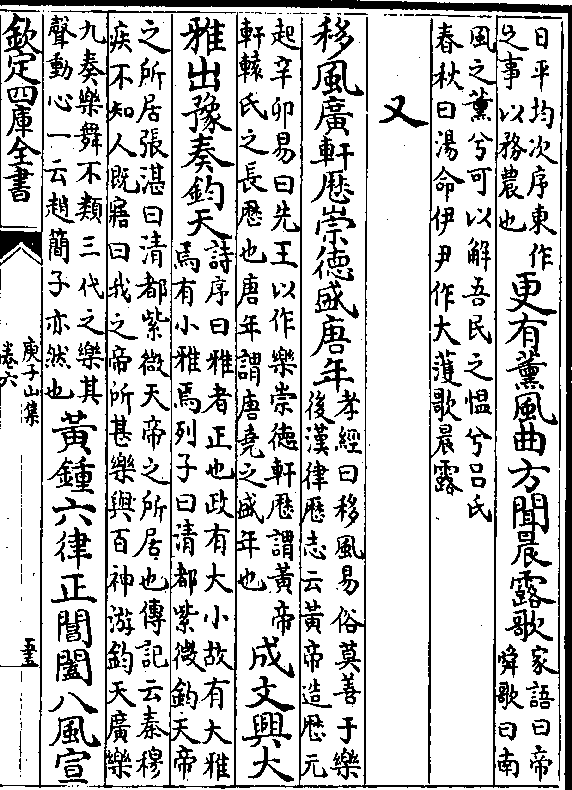 日平均次序東作
之事以務農也
更有薰風曲方聞晨露歌
家語曰帝
舜歌曰南
風之薰兮可以解吾民之慍兮吕氏
春秋曰湯命伊尹作大䕶歌晨露
又
移風廣軒厯崇德盛唐年
孝經曰移風易俗莫善于樂
後漢律厯志云黄帝造厯元
起辛卯易曰先王以作樂崇德軒厯謂黄帝
軒轅氏之長厯也唐年謂唐堯之盛年也
成文興大
雅出豫奏鈞天
詩序曰雅者正也政有大小故有大雅
焉有小雅焉列子曰清都紫微鈞天帝
之所居張湛曰清都紫微天帝之所居也傳記云秦穆
疾不知人既寤曰我之帝所甚樂與百神游鈞天廣樂
九奏樂舞不類三代之樂其
聲動心一云趙簡子亦然也
黄鍾六律正閶闔八風宣
欽定四庫全書
庾子山集
卷六
五